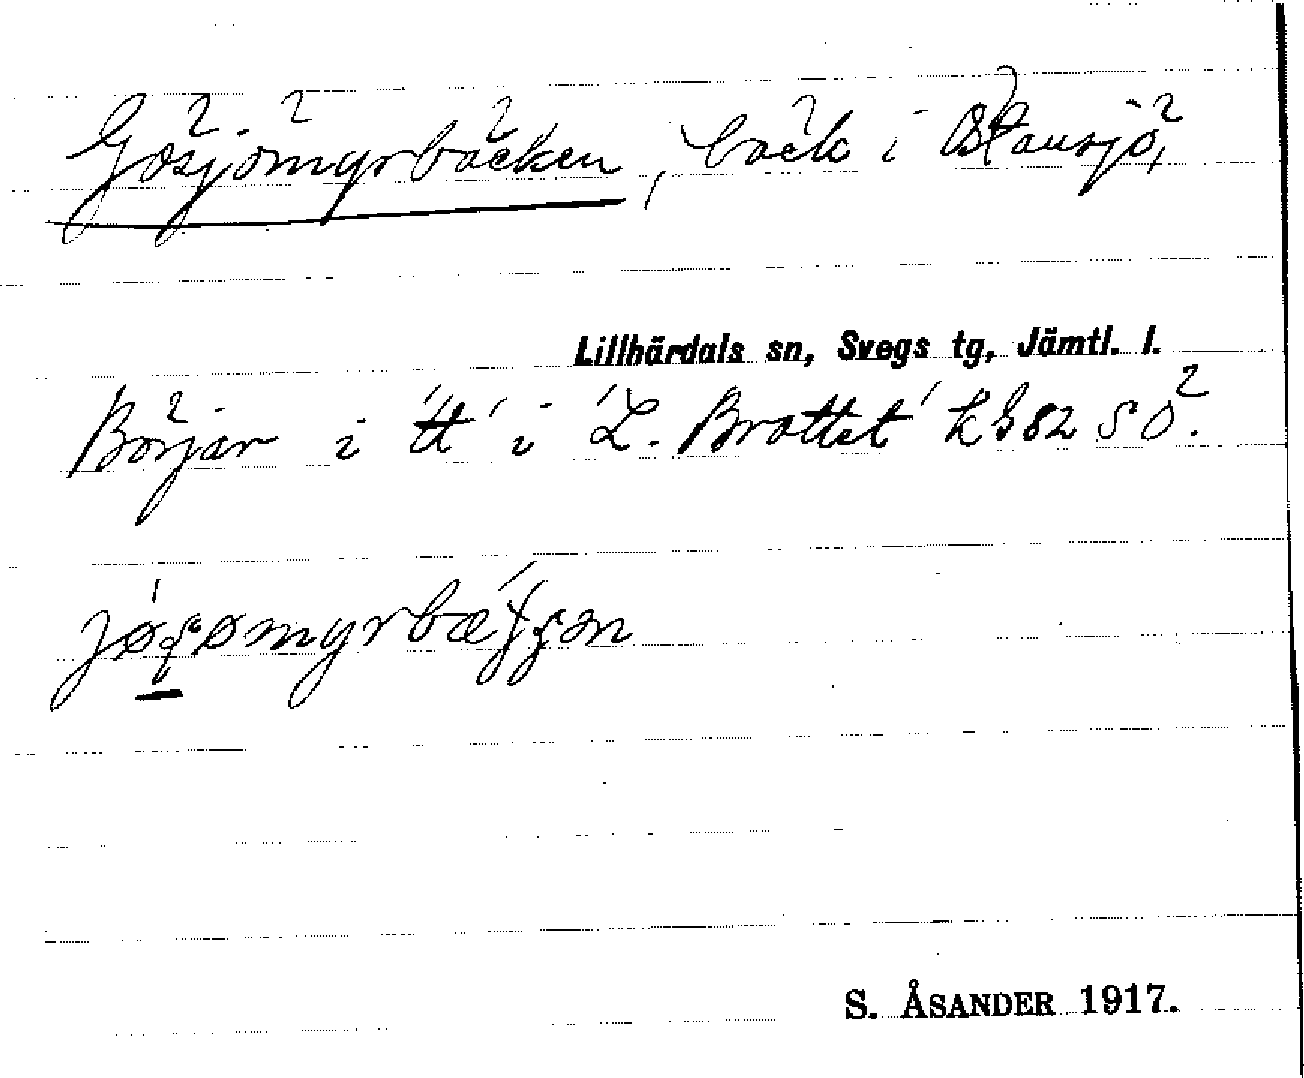 Gösjömyrbäcken, bäck i Östansjö,
Lillhärdals sn, Svegs tg, Jämtl. l.
Börjar i 'tt' i 'L. Brottet' k 382 SÖ.
S. ÅSANDER 1917.